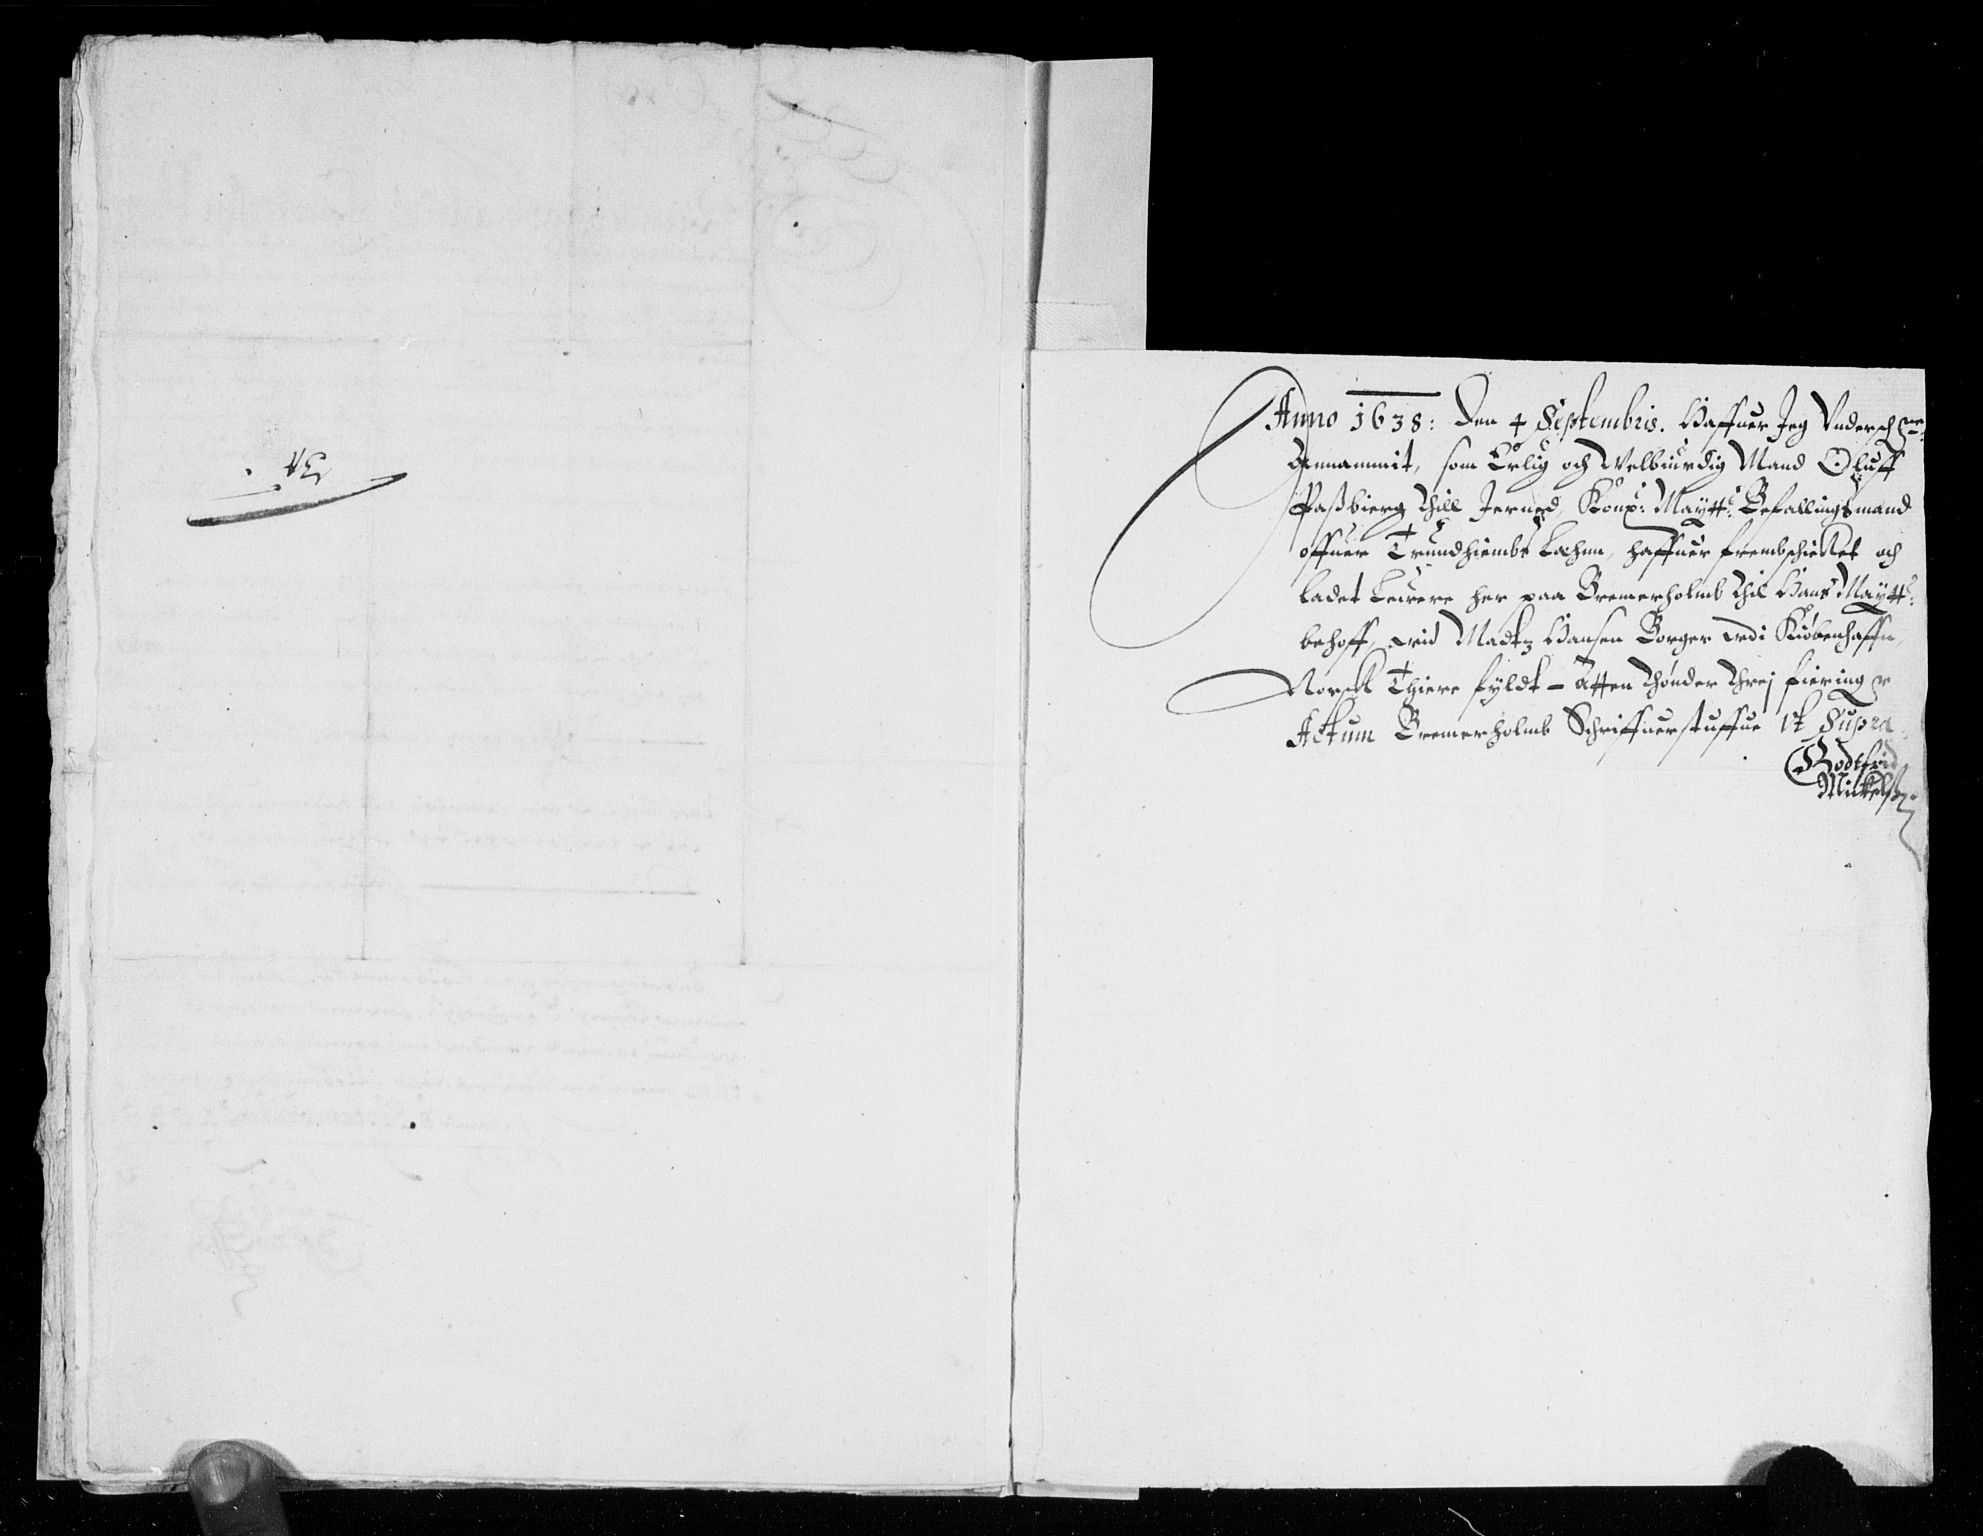 Anno 1638: Den 4 Septembris. Haffuer Jeg Vndersch:ne
Annammit, som Erlig och Welbiurdig Mand Oluff
Passbierg thill Jerned, Kong: Maytt: Befallingsmand
offuer Trundhiembs Læhnn, haffuer frembschicket och
ladet Leuere her paa Bremerholmb thil Hans Maytt:
behoff, wid Madtz Hansen Borger vdi Kiøbenhaffn,
Norsk Thiere fyldt - Atten thønder threj fiering r
Actum Bremerholmb Schriffuerstuffue Vt Supra.
Godtfrid
Mickels